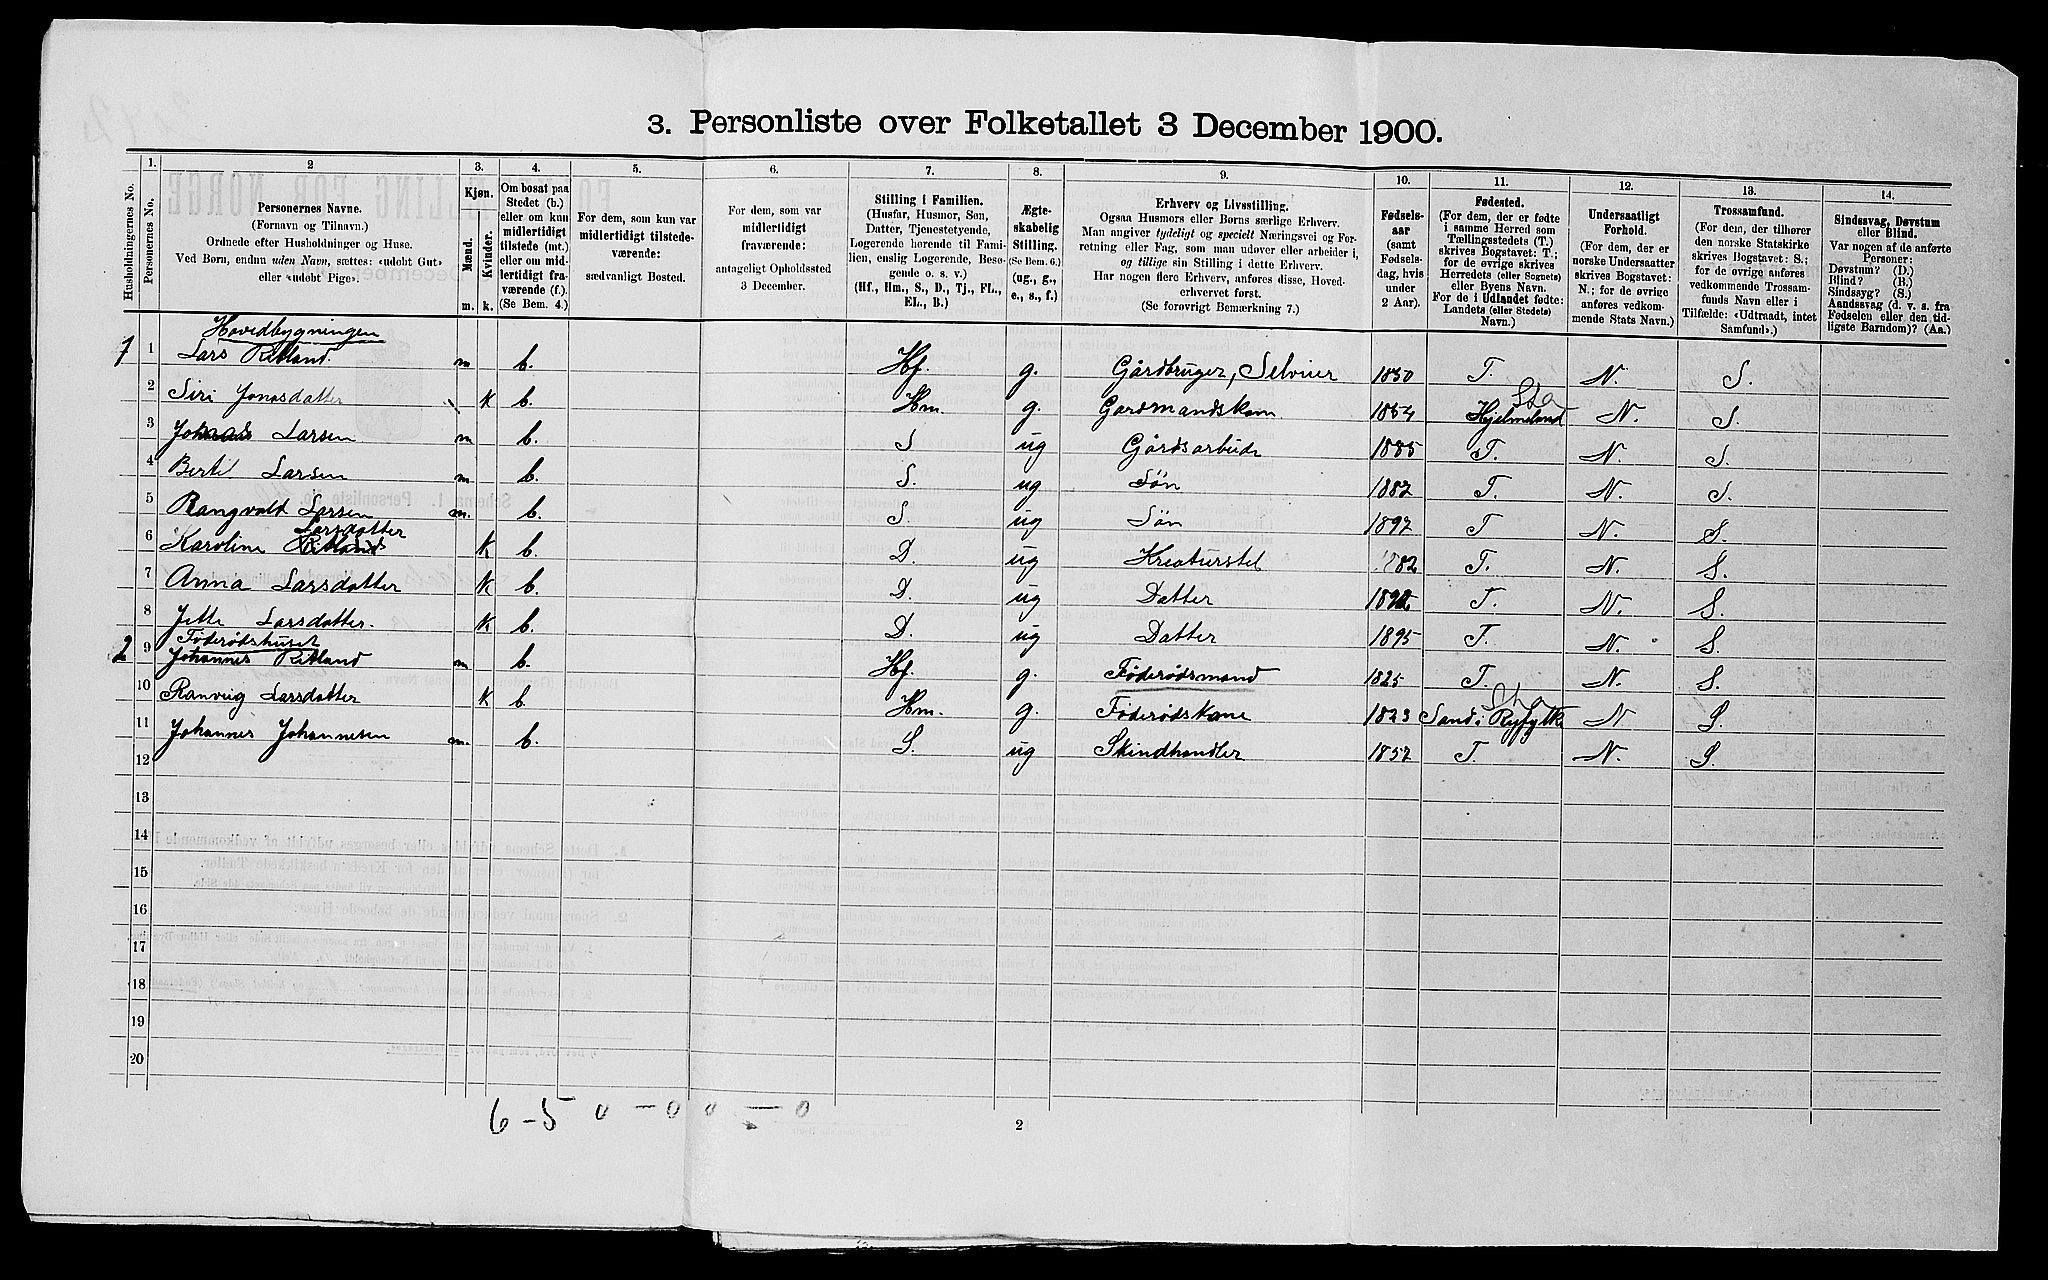 3. Personliste over Folketallet 3 December 1900.
Husholdningernes No.
1. Personernes No.
2 Personernes Navne.
(Fornavn og Tilnavn.)
Ordnede efter Husholdninger og Huse.
Ved Børn, endnu uden Navn, sættes: «udøbt Gut»
eller «udøbt Pige».
3. Kjøn.
Mænd. Kvinder.
m. k.
4. Om bosat paa
Stedet (b.)
eller om kun
midlertidigt
tilstede (mt.)
eller om mid-
lertidigt fra-
værende (f.).
(Se Bem. 4.)
5. For dem, som kun var
midlertidigt tilstede-
værende:
sædvanligt Bosted.
6. For dem, som var
midlertidigt
fraværende:
antageligt Opholdssted
3 December.
7. Stilling i Familien.
(Husfar, Husmor, Søn,
Datter, Tjenestetyende,
Logerende hørende til Fami-
lien, enslig Logerende, Besø-
gende o. s. v.)
(Hf., Hm., S., D., Tj., FL.,
EL., B.)
8. Ægte-
skabelig
Stilling.
(Se Bem. 6.)
(ug., g.,
e., s., f.)
9. Erhverv og Livsstilling.
Ogsaa Husmors eller Børns særlige Erhverv.
Man angiver tydeligt og specielt Næringsvei og For-
retning eller Fag, som man udøver eller arbeider i,
og tillige sin Stilling i dette Erhverv.
Har nogen flere Erhverv, anføres disse, Hoved-
erhvervet først.
(Se forøvrigt Bemærkning 7.)
10. Fødsels-
aar
(samt
Fødsels-
dag, hvis
under
2 Aar).
11. Fødested.
(For dem, der er fødte
i samme Herred som
Tællingsstedets (T.)
skrives Bogstavet: T.;
for de øvrige skrives
Herredets (eller Sognets)
eller Byens Navn.
For de i Udlandet fødte:
Landets (eller Stedets)
Navn.)
12. Undersaatligt
Forhold.
(For dem, der er
norske Undersaatter
skrives Bogstavet:
N.; for de øvrige
anføres vedkom-
mende Stats Navn.)
13. Trossamfund.
(For dem, der tilhører
den norske Statskirke
skrives Bogstavet: S.;
for de øvrige anføres
vedkommende Trossam-
funds Navn eller i
Tilfælde: «Udtraadt, intet
Samfund».)
14. Sindssvag, Døvstum
eller Blind.
Var nogen af de anførte
Personer:
Døvstum? (D.)
Blind? (B.)
Sindssyg? (S.)
Aandssvag (d. v. s. fra
Fødselen eller den tid-
ligste Barndom)? (Aa.)
Hovedbygningen
1 1 Lars Ritland m b. Hf. g. Gårdbruger, Selveier 1850 T. N. S.
2 Siri Jonasdatter k b. Hm. g. Gardmandskone 1854 Hjelmeland Sta N. S.
3 Larsen m b. S ug Gårdsarbeide 1885 T. N. S.
4 Bertil Larsen m b. S. ug Søn 1887 T. N. S.
5 Rangvald Larsen m. b. S. ug Søn 1897 T N. S.
6 Karoline Larsdatter K b. D. ug Kreaturstel 1882 T. N. S.
7 Anna Larsdatter K b. D. ug Datter T. N. S.
8 Jette Larsdatter. K b. D. ug Datter 1895 T. N. S.
Føderådshuset
2 9 Johannes Ritland m b. Hf. g. Føderådsmand 1825 T. N. S.
10 Ranveig Larsdatter K b. Hm. g. Føderådskone 1823 Sand i Ryfylke Sta N S.
11 Johannes Johannesen m. b. S. ug Skindhandler 1857 T. N. S.
12
13
14
15
16
17
18
19
20
6 - 5 0 - 0 0 - 0
2